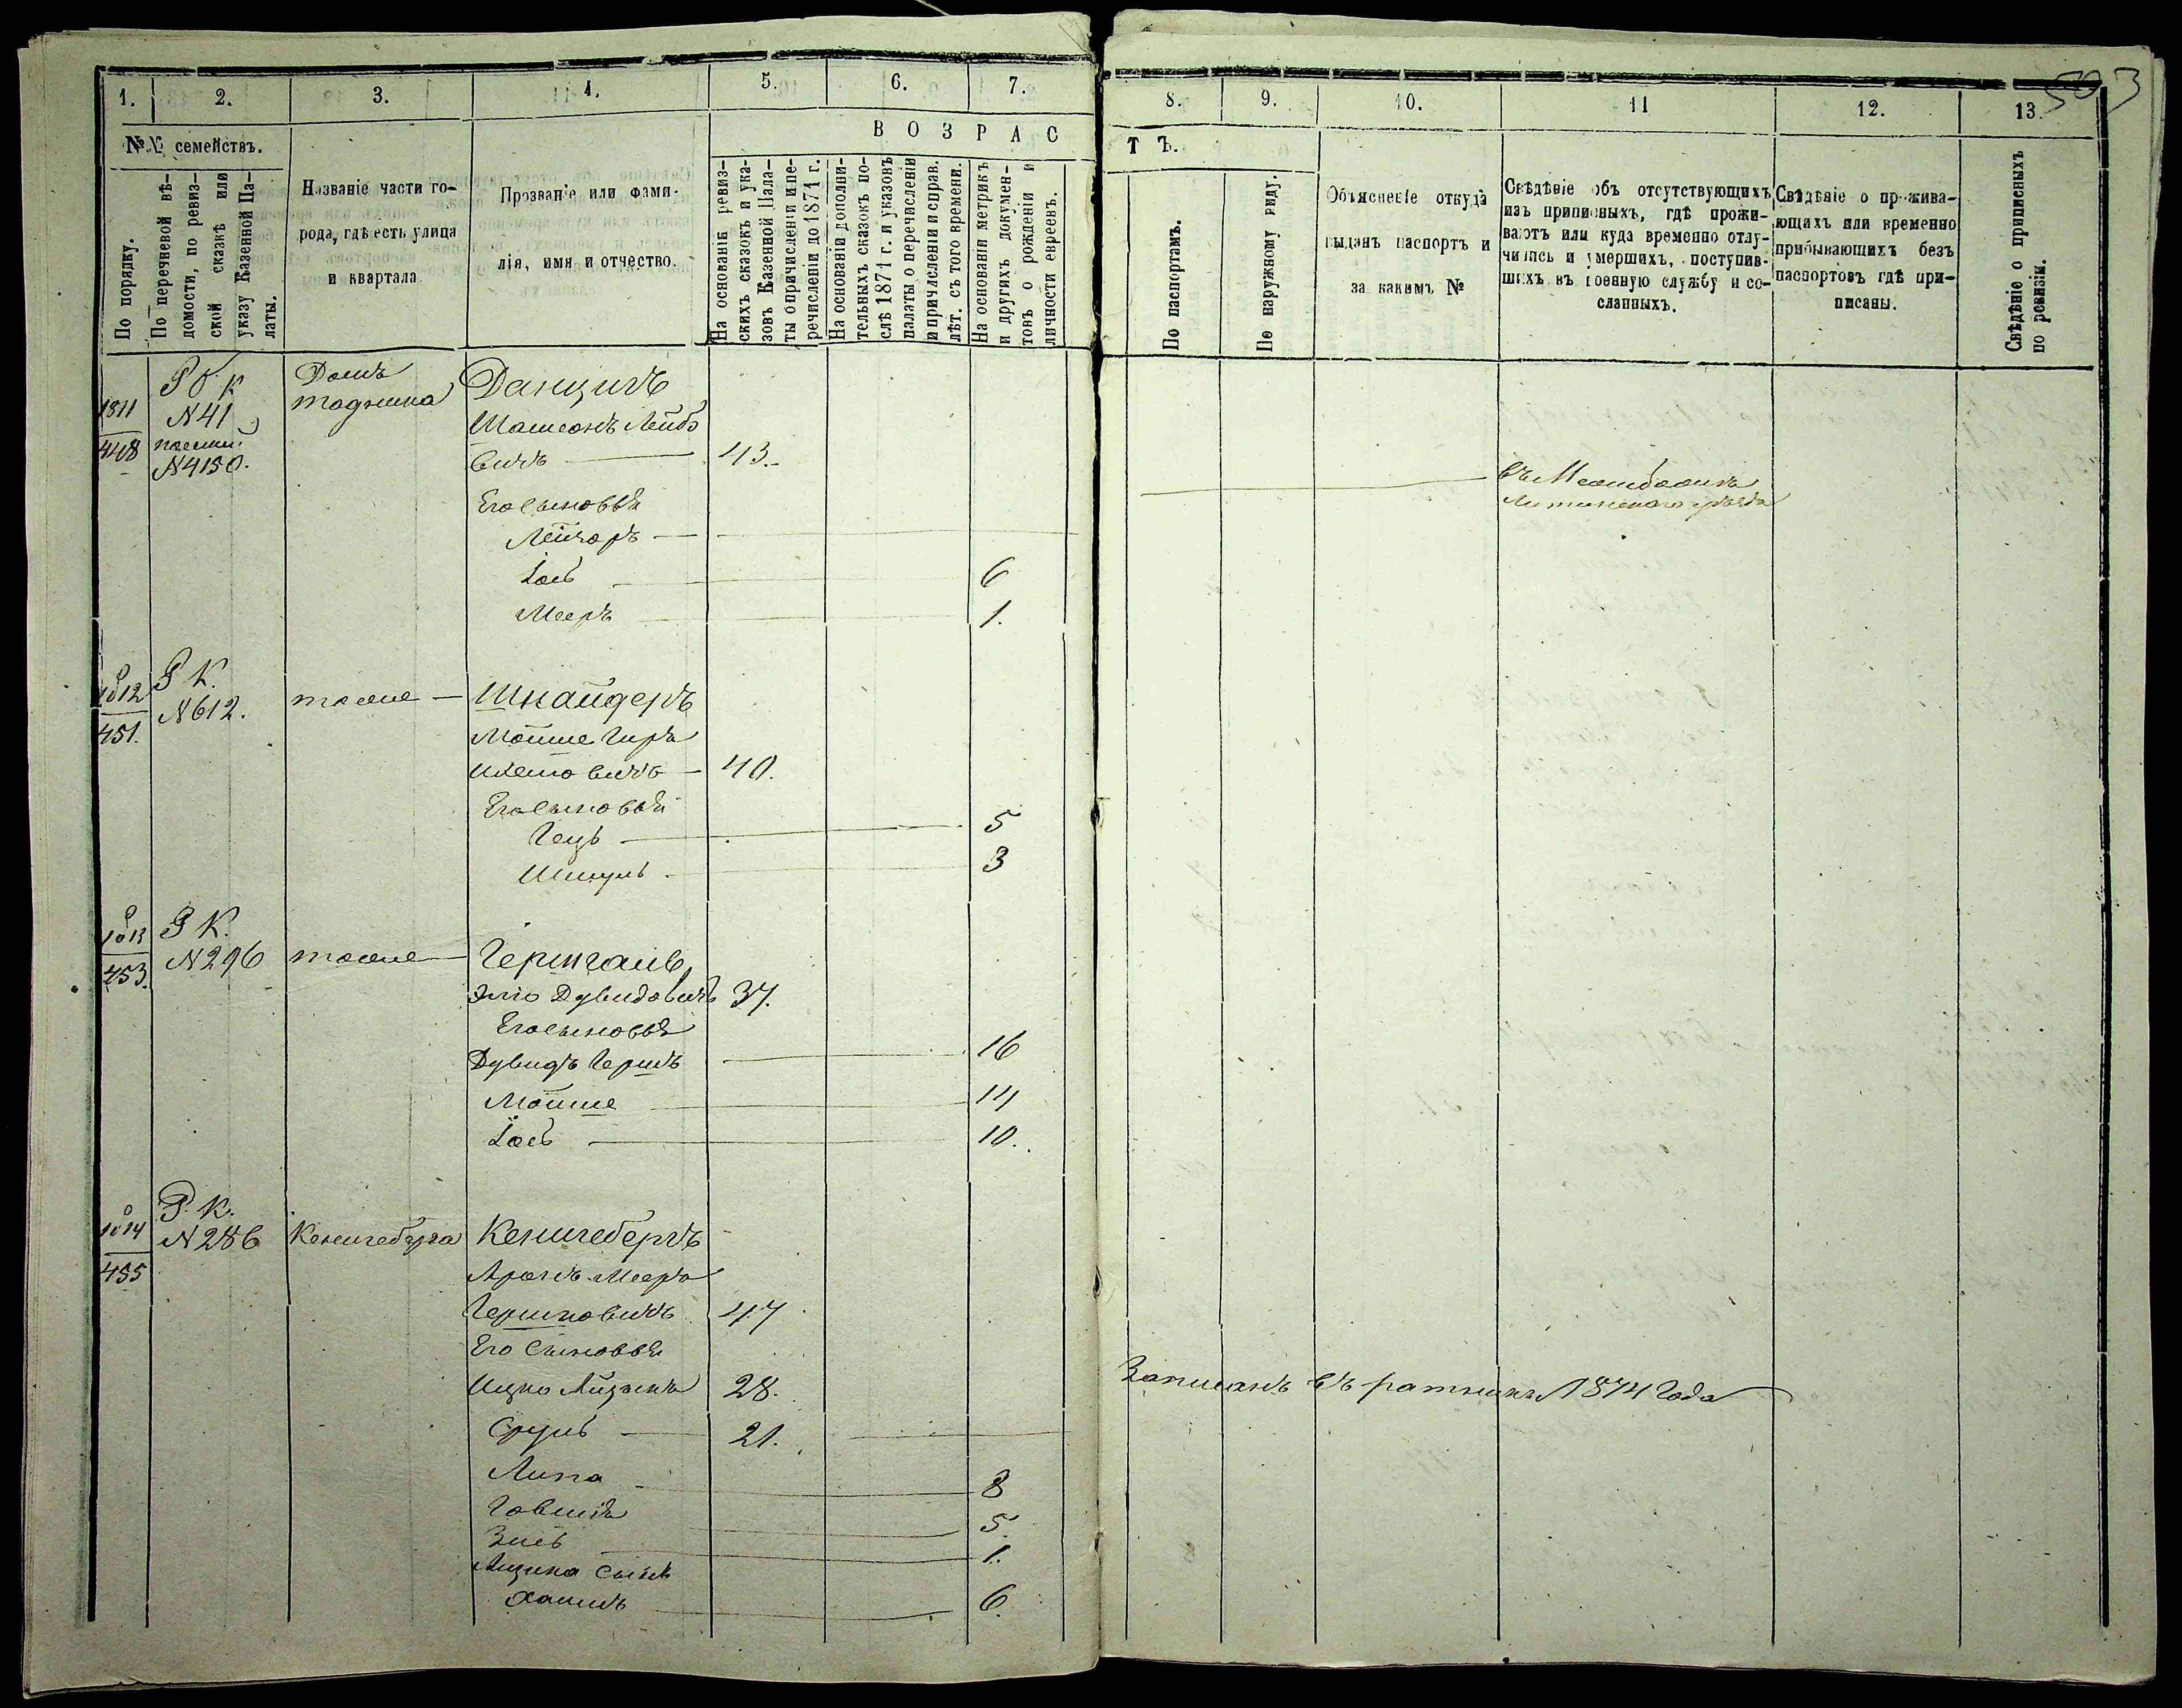 503
1. 2. 3. 4. 5. 6. 7.
8. 9. 10. 11 12. 13.
№№ семействъ.
По порядку.
По перечневой вѣ-
домости, по ревиз-
ской сказкѣ или
указу Казенной Па-
латы.
Названіе части го-
рода, гдѣ есть улица
и квартала
Прозваніе или фами-
лія, имя и отчество.
ВОЗРАС
ТЪ.
На основаніи ревиз-
скихъ сказокъ и ука-
зовъ Казенной Пала-
ты о причисленіи и пе-
речисленіи до 1871 г.
На основаніи дополни-
тельныхъ сказокъ по-
слѣ 1871 г. и указовъ
палаты о перечисленіи
и причисленіи и справ.
лѣт. съ того времени.
На основаніи метрикъ
и другихъ докумен-
товъ о рожденіи и
личности евреевъ.
По паспортамъ.
По наружному виду.
Объясненіе откуда
выданъ паспортъ и
за какимъ №
Свѣдѣніе объ отсутствующихъ
изъ приписныхъ, гдѣ прожи-
ваютъ или куда временно отлу-
чились и умершихъ, поступив-
шихъ въ военную службу и со-
сланныхъ.
Свѣдѣніе о прожива-
ющихъ или временно
прибывающихъ безъ
паспортовъ гдѣ при-
писаны.
Свѣдѣніе о приписныхъ
по ревизіи.
1811
448
N41
N4150.
Домъ
Данцигъ
Шмшонъ Лейбо
вичъ 43.
Его сыновья
Лейзоръ
Іось 6
Мееръ 1.
Литинского уѣзда
1812
451.
Р К.
N612.
тоже
Шнайдеръ
Мойше Гиръ
Ицковичъ 40.
Его сыновья
Гецъ 5
Шмуль 3
1813
453.
Р К.
N296
тоже
Гершгаль
Элю Дувидовичъ 37.
Его сыновья
Дувидъ Гершъ 16
Мойше 14
Іось 10.
1814
455
Р. К.
N286
Кенигсберга
Кенигсбергъ
Аронъ Мееръ
Гершковичъ 47
Его сыновья
Ицко Айзикъ 28.
Записанъ въ ратники 1874 года
Сруль 21.
Липа 8
Говшія 5.
Зись 1.
Ицика сынъ
Хаимъ 6.